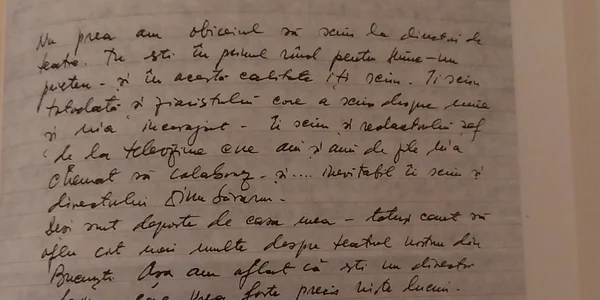 Nu prea am obiceiul să scriu la directori de
teatre. Tu ești în primul rînd pentru mine – un
prieten – și în această calitate îți scriu. Ți scriu
totodată și ziaristului care a scris despre mine
și m-a încurajat – Ți scriu și redactorului șef
de la televiziune care ani și ani de zile m-a
chemat să colaborez – și.... inevitabil ți scriu și
directorului Dinu Săraru.
Deși sunt departe de casa mea – totuși caut să
aflu cît mai multe despre teatrul nostru din
București. Așa am aflat că ești un director
care vrea foarte precis niște lucruri.